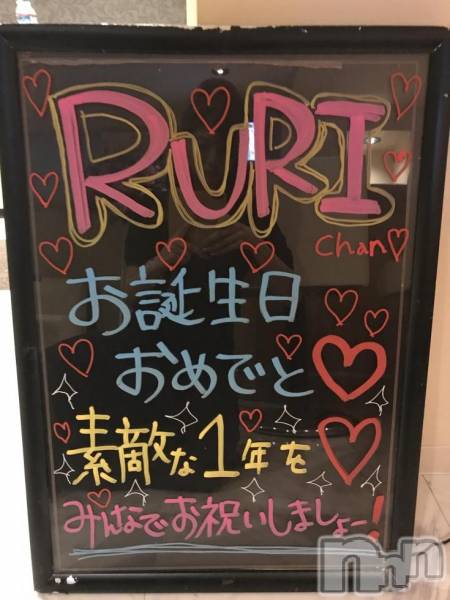 RURI
chan
お誕生日
おめでと
素敵な1年を
みんなでお祝いしましょー!
nnn